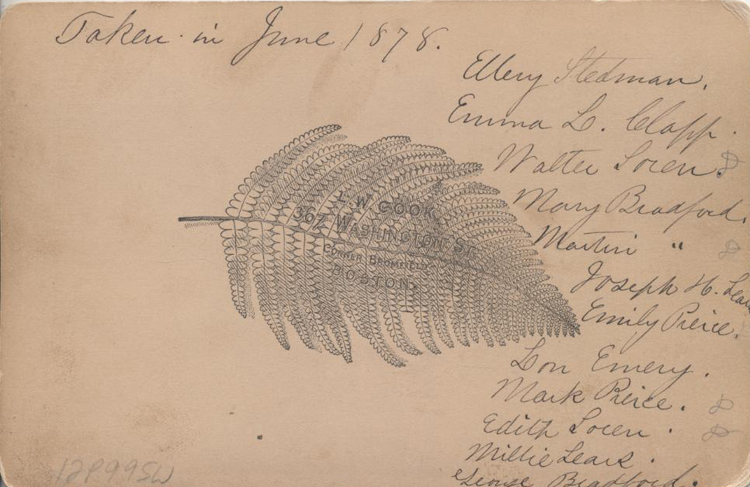 Taken in June 1878.
Ellery Stedman.
Emma L. Clapp.
Walter Loren.
Mary Bradford.
Martin "
Joseph H. Lears
Emily Pierce.
Lon Emery.
Mark Pierce.
Edith Loren.
Millie Lears.
George Bradford.
L. W. COOK,
307 WASHINGTON ST.
CORNER BROMFIELD,
BOSTON.
12P99SW